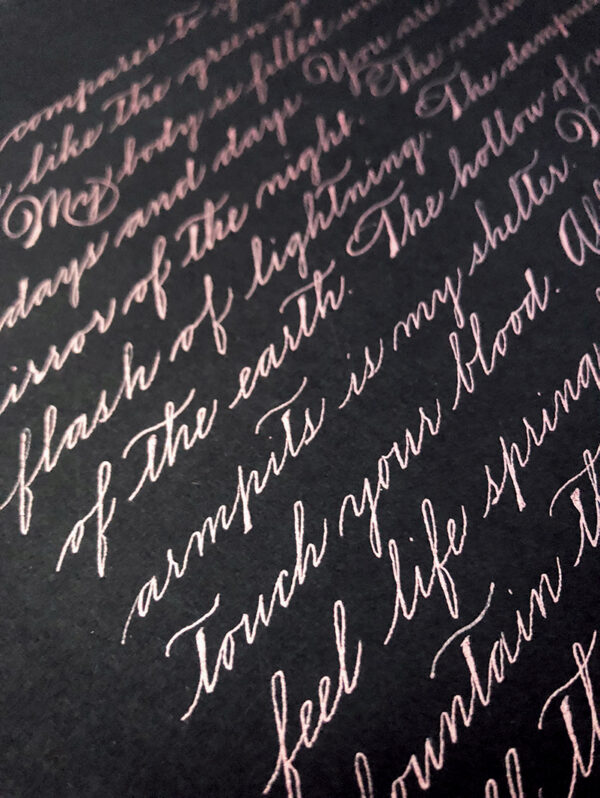 compares to
like the green
My body is filled
days and days. You are
irror of the night. The
flash of lightning. The
of the earth. The hollow of
armpits is my shelter.
Touch your blood.
feel life spring
fountain